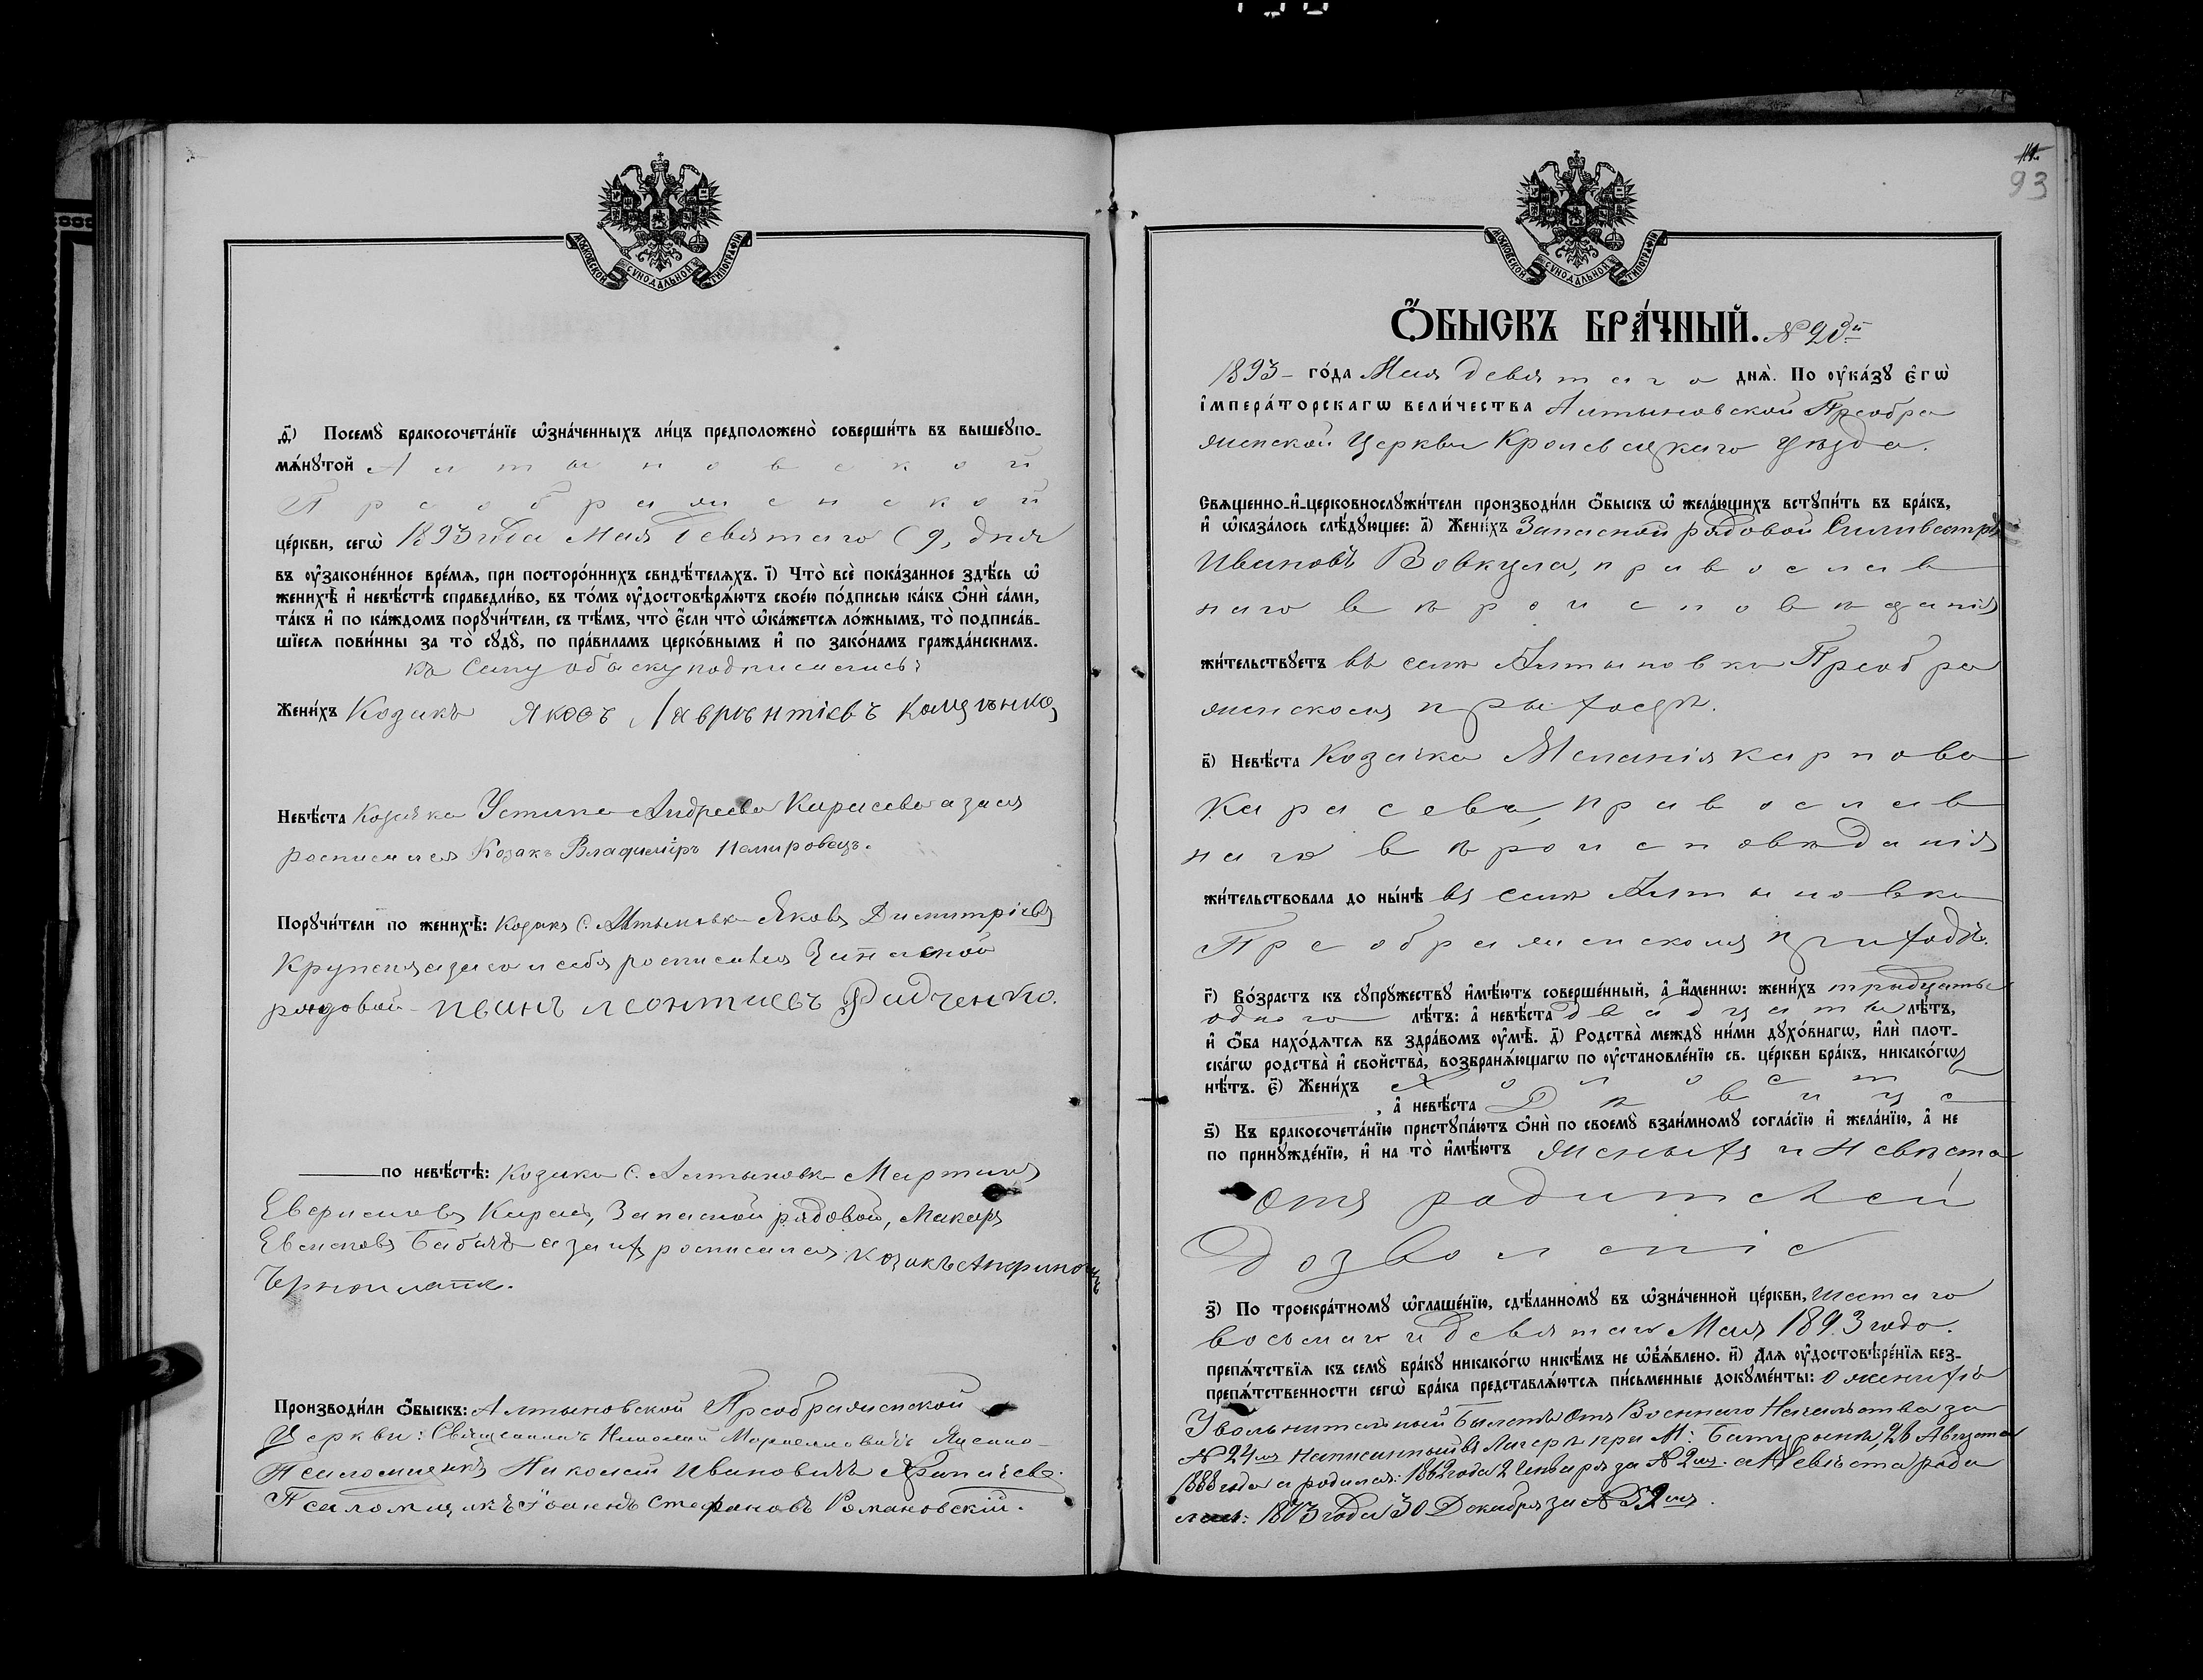 МОСКОВСКОЙ СѴНОДАЛЬНОЙ ТИПОГРАФІИ
ѳ҃) Посемꙋ̀ бракосочета́нїе ѡ҆зна́ченныхъ ли́цъ предположено̀ соверши́ть въ вышеꙋпо-
мѧ́нꙋтой Алтыновской
Преображенской
це́ркви, сегѡ̀ 1893 года Мая девятаго (9, дня
въ ᲂу҆законе́нное вре́мѧ, при посторо́ннихъ свидѣ́телѧхъ. і҃) Что̀ всѐ пока́занное здѣ́сь ѡ҆
женихѣ̀ и҆ невѣ́стѣ справедли́во, въ то́мъ ᲂу҆достовѣрѧ́ютъ свое́ю по́дписью ка́къ ѻ҆нѝ са́ми,
та́къ и҆ по ка́ждомъ порꙋчи́тели, съ тѣ́мъ, что̀ є҆́сли что̀ ѡ҆ка́жетсѧ ло́жнымъ, то̀ подписа́в-
шїесѧ пови́нны за то̀ сꙋдꙋ̀, по пра́виламъ церко́внымъ и҆ по зако́намъ гражда́нскимъ.
къ Сему обыску подписались:
Жени́хъ Козакъ Яковъ Лаврѣнтіевъ
Невѣ́ста Козачка Устина Андреева Карасева а за ея
росписался Козакъ Владимiръ
Порꙋчи́тели по женихѣ̀: Козакъ С. Алтыновки Яковъ Димитріевъ
а за его и себя росписался Запасной
рядовой Иванъ Леонтиевъ Радченко.
по невѣ́стѣ: Козаки С. Алтыновки Мартинъ
Карась, Запасной рядовой, Макаръ
а за ихъ росписался козакъ
Производи́ли ѻ҆́быскъ: Алтыновской Преображенской
Церкви: Священникъ Николай
Псаломщикъ Николай Ивановичъ
Псаломщикъ Іоаннъ Стефановъ Романовскій.
93
МОСКОВСКОЙ СѴНОДАЛЬНОЙ ТИПОГРАФІИ
Ѻ҆́БЫСКЪ БРА́ЧНЫЙ.
1893 го́да Мая девятаго днѧ̀. По ᲂу҆ка́зꙋ є҆гѡ̀
і҆мпера́торскагѡ вели́чества Алтыновской Преобра
женской Церкви Кролевецкаго Уѣзда.
Свѧщенно-и҆-церковнослꙋжи́тели производи́ли ѻ҆́быскъ ѡ҆ жела́ющихъ встꙋпи́ть въ бра́къ,
и҆ ѡ҆каза́лось слѣ́дꙋющее: а҃) Жени́хъ Запасной рядовой Силивестръ
Ивановъ Вовкула, православ
наго вѣроисповѣданія
жи́тельствꙋетъ въ селѣ Алтыновки Преобра
женскомъ приходѣ.
в҃) Невѣ́ста Козачка Меланія Карпова
Карасева, православ
наго вѣроисповѣданія
жи́тельствовала до ны́нѣ въ селѣ Алтыновки
Преображенскомъ приходѣ.
г҃) Во́зрастъ къ сꙋпрꙋ́жествꙋ и҆мѣ́ютъ соверше́нный, а҆ и҆́меннѡ: жени́хъ тридцать
одного лѣ́тъ: а҆ невѣ́ста двадцати лѣ́тъ,
и҆ ѻ҆́ба нахо́дѧтсѧ въ здра́вомъ ᲂу҆мѣ̀. д҃) Родства̀ междꙋ̀ ни́ми дꙋхо́внагѡ, и҆лѝ плот-
ска́гѡ родства̀ и҆ свойства̀, возбранѧ́ющагѡ по ᲂу҆становле́нїю св. це́ркви бра́къ, никако́гѡ
нѣ́тъ. є҃) Жени́хъ Холостъ
, а҆ невѣ́ста Дѣвица
ѕ҃) Къ бракосочета́нїю пристꙋпа́ютъ ѻ҆нѝ по своемꙋ̀ взаи́мномꙋ согла́сїю и҆ жела́нїю, а҆ не
по принꙋжде́нїю, и҆ на то̀ и҆мѣ́ютъ женыхъ и Невѣста
отъ родителей
дозволеніе
з҃) По троекра́тномꙋ ѡ҆глаше́нїю, сдѣ́ланномꙋ въ ѡ҆зна́ченной це́ркви, шестаго
восьмаго и девятаго Мая 1893 года.
препѧ́тствїѧ къ семꙋ̀ бра́кꙋ никако́гѡ никѣ́мъ не ѡ҆б̾ѧ́влено. и҃) Длѧ ᲂу҆достовѣре́нїѧ без-
препѧ́тственности сегѡ̀ бра́ка представлѧ́ютсѧ пи́сьменные докꙋме́нты: о женихѣ
Увольнительный Билетъ отъ Военнаго Начальства за
№ 24мъ Написанный въ Лагерѣ при М: Батуринѣ, 26 Августа
1888 года а родился: 1862 года 2 Января за № 2мъ. а Невѣста роди
лась: 1873 года 30 Декабря за № 52мъ.